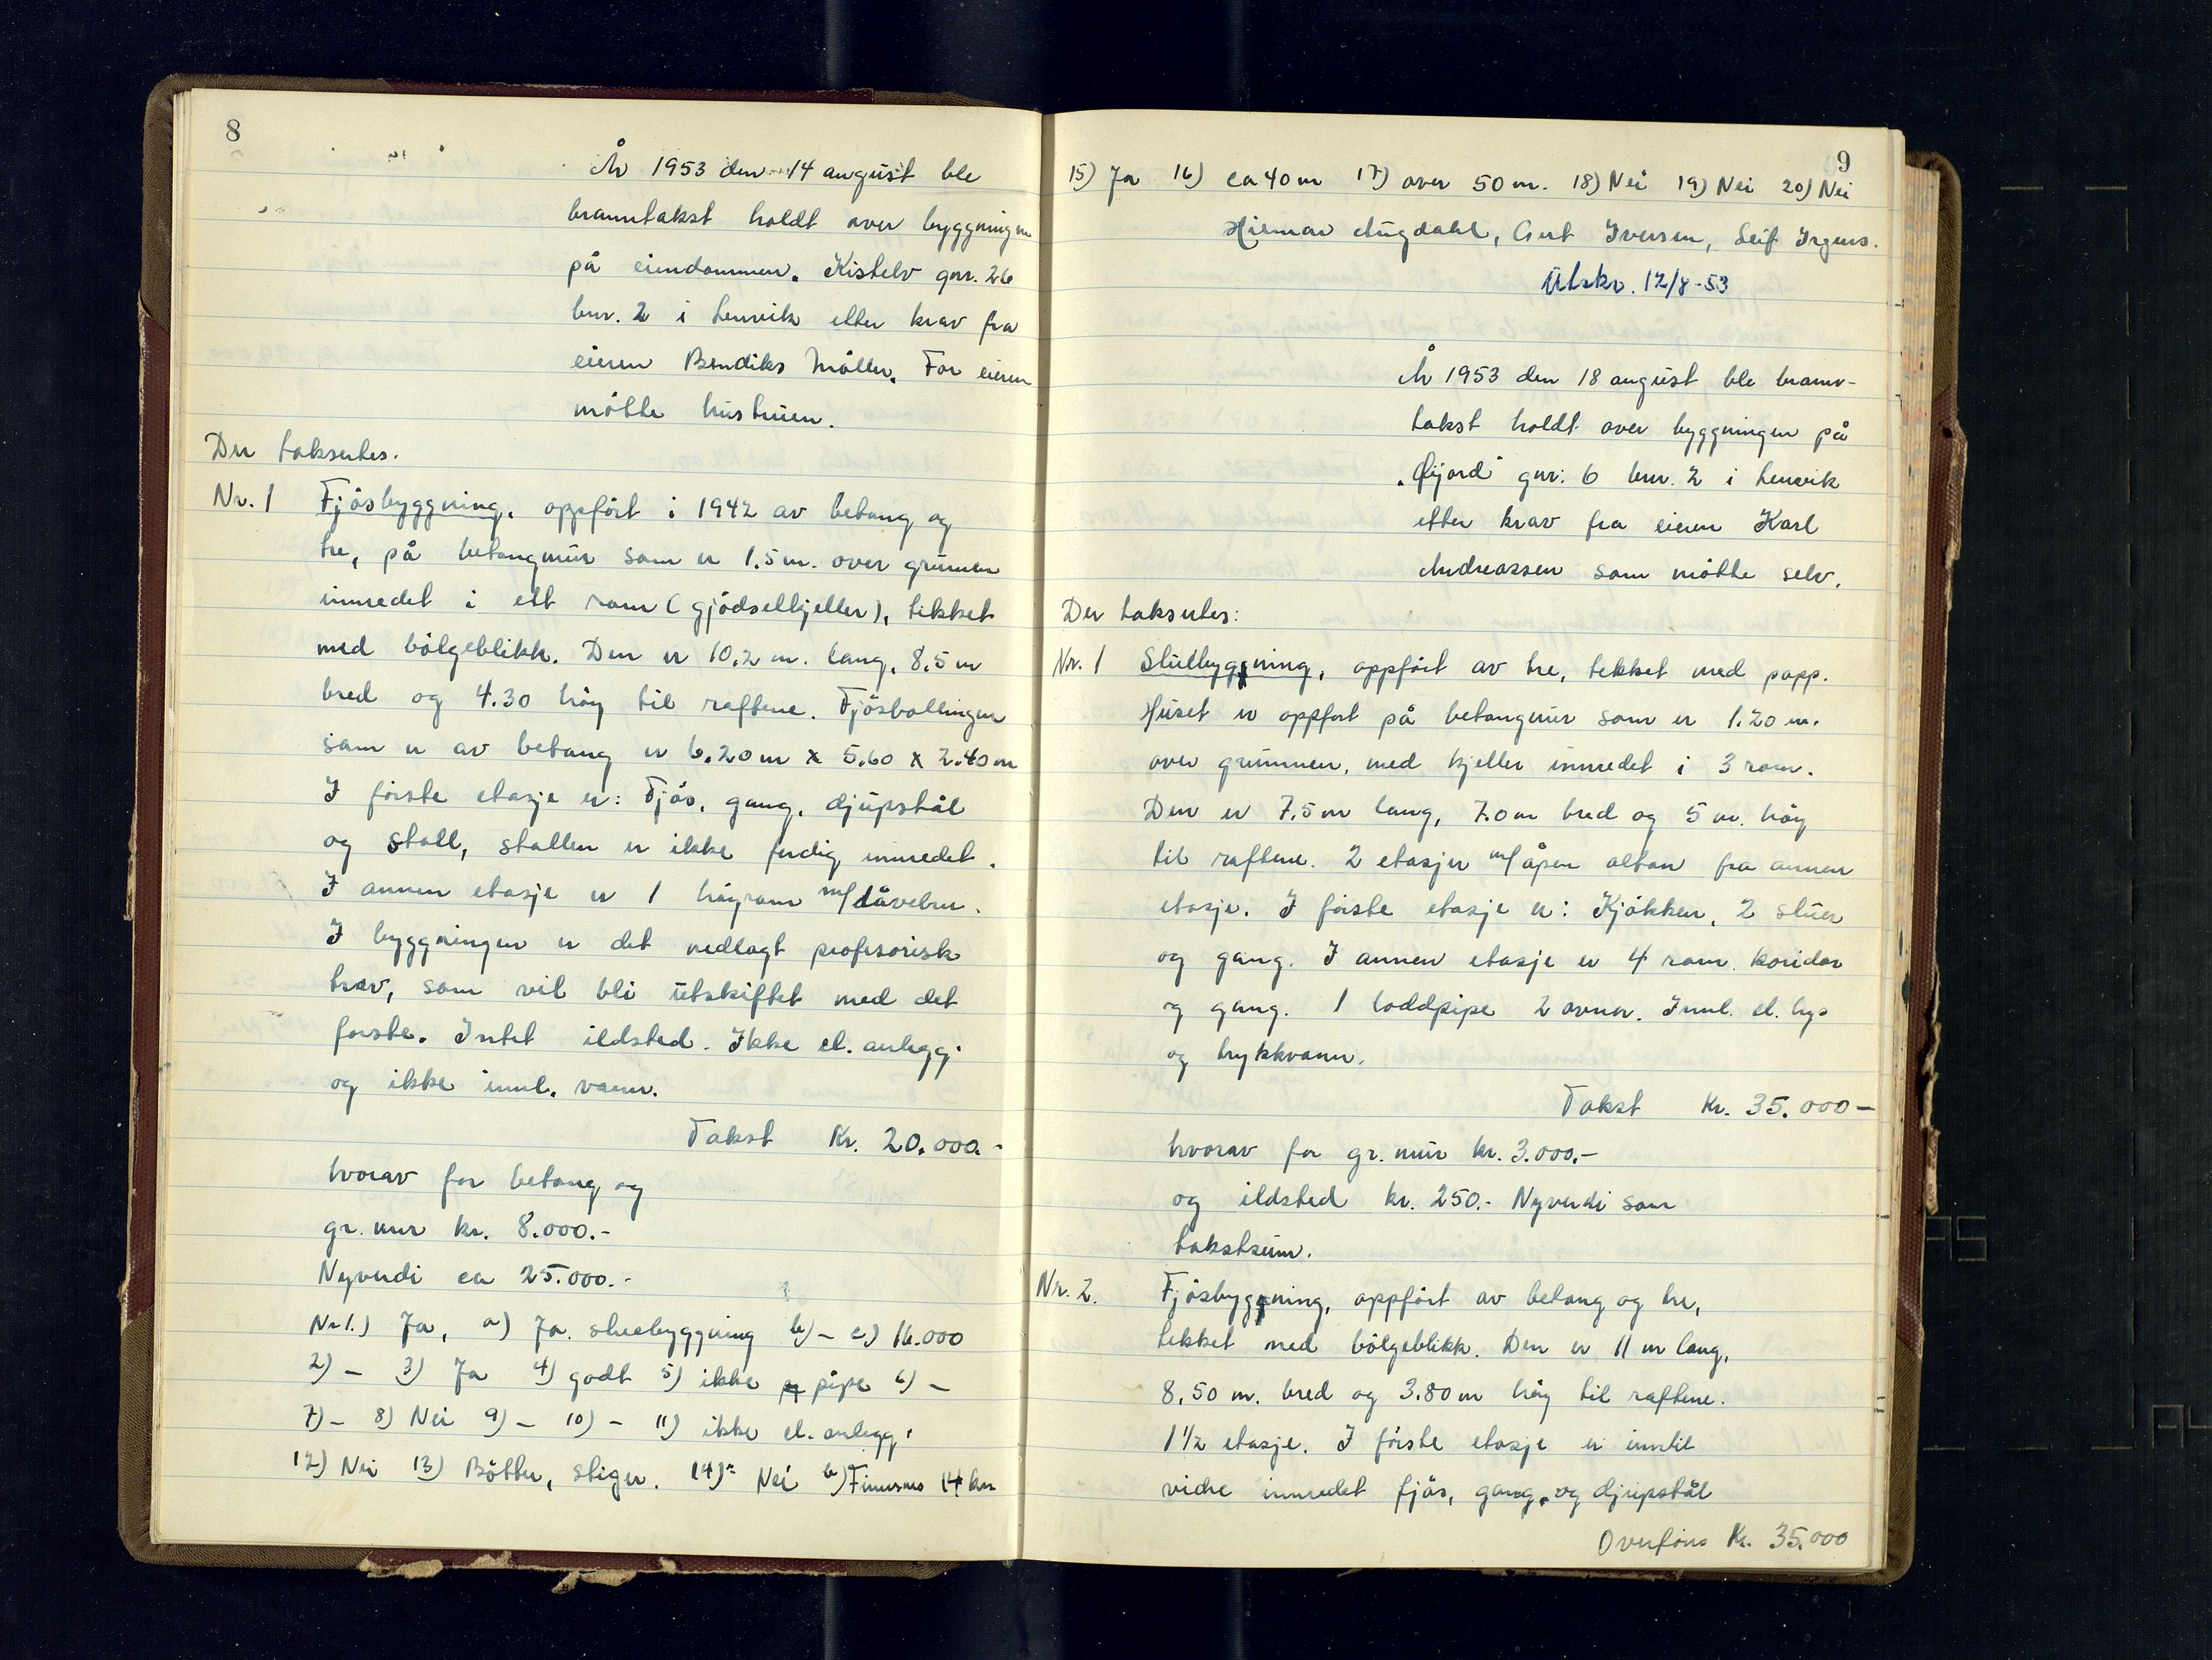 8
År 1953 den 14 august ble
branntakst holdt over byggningen
på eiendommen. Kistelv gnr. 26
bnr. 2 i Lenvik etter krav fra
eieren Bendiks Møller. For eieren
møtte hustruen.
Der taksertes.
Nr. 1 Fjøsbyggning, oppført i 1942 av betong og
tre, på betongmur som er 1.5 m. over grunnen
innredet i ett rom (gjødselkjeller), tekket
med bølgeblikk. Den er 10.2 m. lang, 8,5 m
bred og 4.30 høy til raftene. Fjøsbollingen
som er av betong er 6.20 m x 5.60 x 2.40 m
I første etasje er: Fjøs, gang, djupstål
og stall, stallen er ikke ferdig innredet.
I annen etasje er 1 høyrom m/låvebru.
I byggningen er det nedlagt profesorisk
trev, som vil bli utskiftet med det
første. Intet ildsted. Ikke el. anlegg
og ikke innl. vann.
Takst Kr. 20.000.-
hvorav for betong og
gr. mur kr. 8.000.-
Nyverdi ca 25.000.-
Nr 1.) Ja, a) Ja. sluebyggning b) - c) 16.000
2) - 3) Ja 4) godt 5) ikke pipe 6) -
7) - 8) Nei 9) - 10) - 11) ikke el. anlegg.
12) Nei 13) Bøtter, stiger. 14) a Nei b) Finnsnes 14 km
9
15) Ja 16) ca 40 m 17) over 50 m. 18) Nei 19) Nei 20) Nei
Hilmar Augdahl, Gert Iversen, Leif Irgens.
Utskr. 12/8-53
År 1953 den 18 august ble brann-
takst holdt over byggningen på
"Øijord" gnr: 6 bnr. 2 i Lenvik
etter krav fra eieren Karl
Andreassen som møtte selv.
Der taksertes:
Nr. 1 Stuebyggning, oppført av tre, tekket med papp.
Huset er oppført på betongmur som er 1.20 m.
over grunnen, med kjeller innredet i 3 rom.
Den er 7.5 m lang, 7.0 m bred og 5 m. høy
til raftene. 2 etasjer m/åpen altan fra annen
etasje. I første etasje er: Kjøkken, 2 stuer
og gang. I annen etasje er 4 rom koridor
og gang. 1 loddpipe 2 ovner. Innl. el. lys
og trykkvann.
Takst Kr. 35.000-
hvorav for gr. mur kr. 3.000.-
og ildsted kr. 250.- Nyverdi som
takstsum.
Nr. 2. Fjøsbyggning, oppført av betong og tre,
tekket med bølgeblikk. Den er 11 m lang,
8.50 m. bred og 3.80 m høy til raftene.
1 1/2 etasje. I første etasje er inntil
videre innredet fjøs, gang, og djupstål
Overføres Kr. 35.000